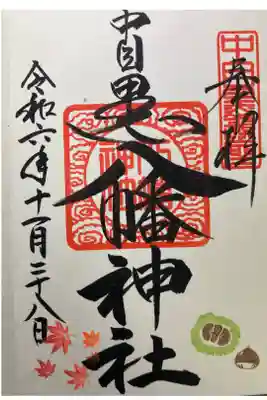 奉拝
中目黒八幡神社
令和六年十一月二十八日